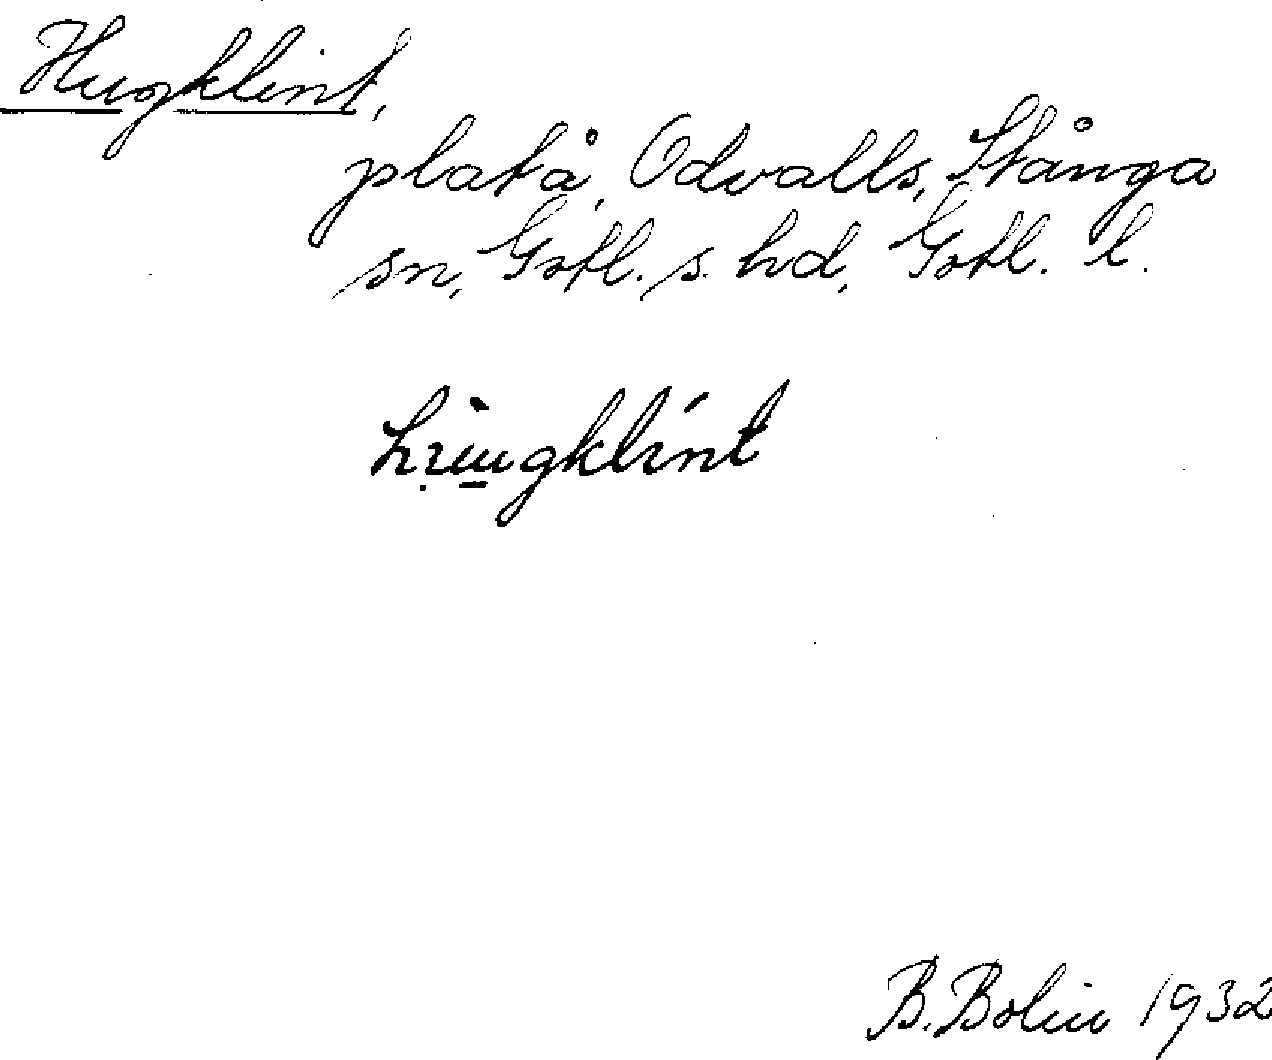 Hugklint,
platå, Odvalls, Stånga
sn, Gotl. s. hd, Gotl. l.
B. Bolin 1932